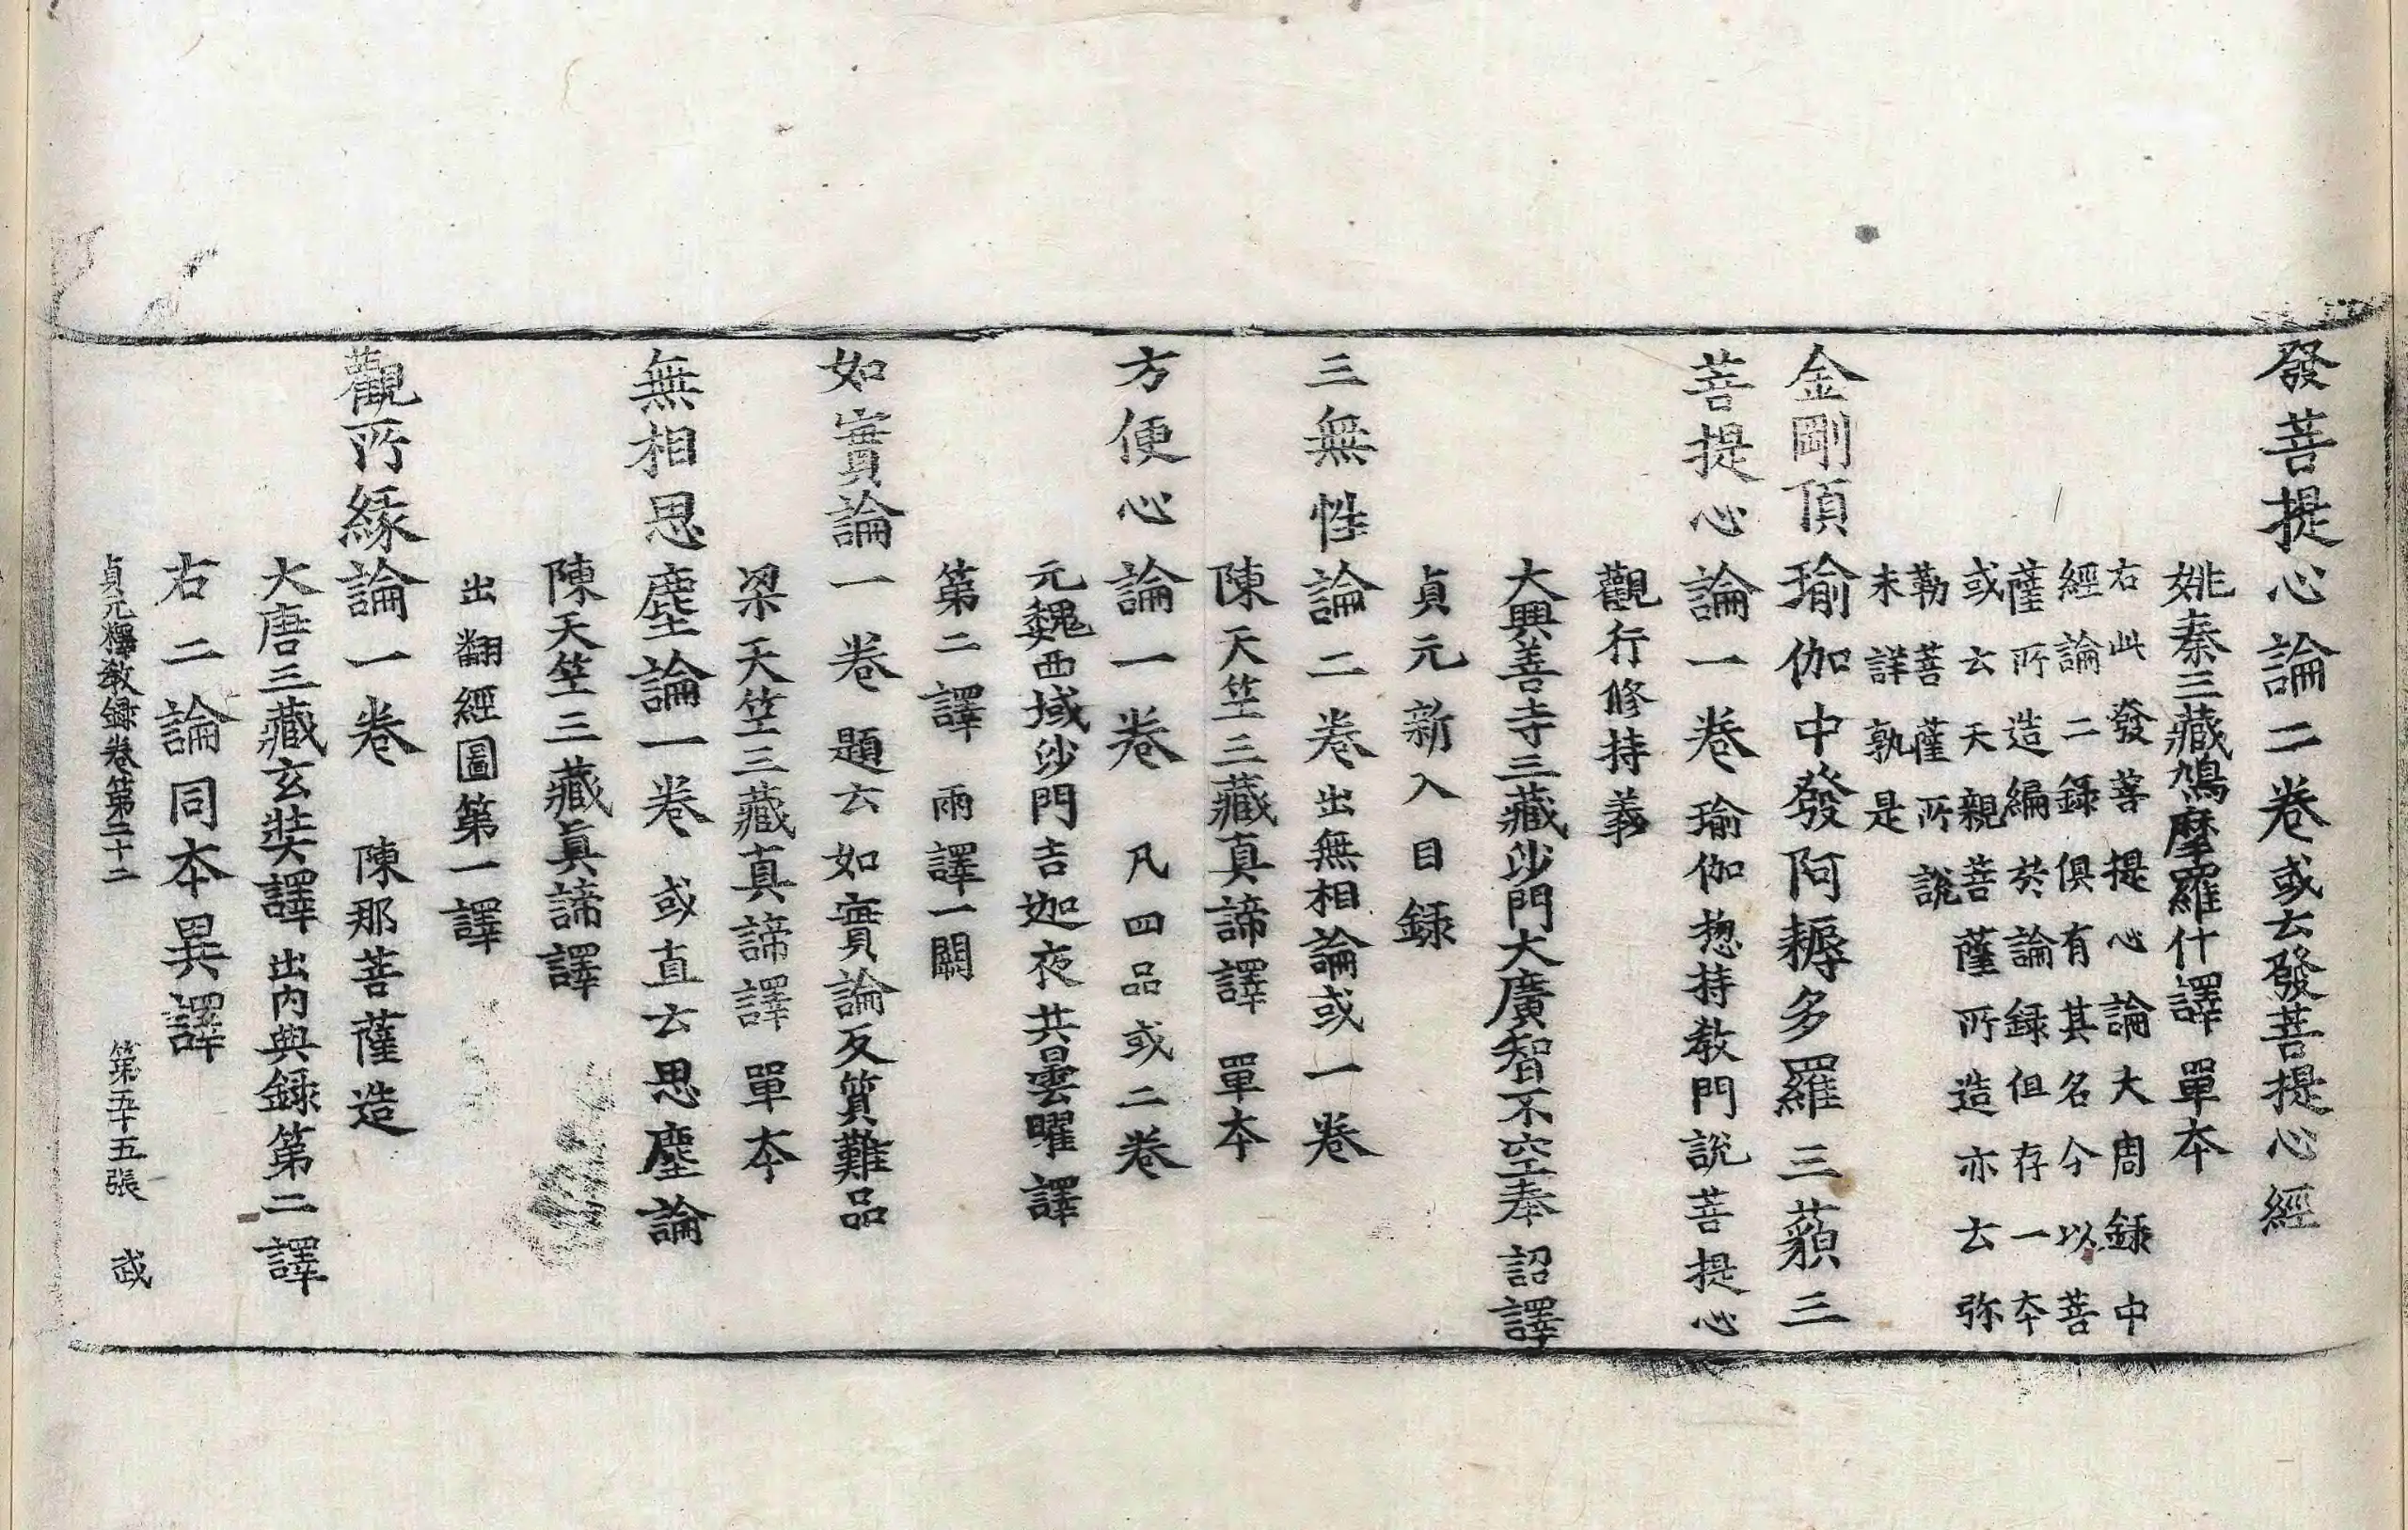 發菩提心論二卷或云發菩提心經
姚秦三藏鳩摩羅什譯單本
右此發菩提心論大周録中
經論二録俱有其名今以菩
薩所造編於論録但存一本
或云天親菩薩所造亦云弥
勒菩薩所說
未詳孰是
金剛頂瑜伽中發阿耨多羅三藐三
菩提心論一卷瑜伽惣持教門説菩提心
觀行修持義
大興善寺三藏沙門大廣智不空奉詔譯
貞元新入目録
三無性論二卷出無相論或一卷
陳天笠三藏真諦譯單本
方便心論一卷凡四品或二卷
元魏西域沙門吉迦夜共曇曜譯
第二譯兩譯一闕
如實論一卷題云如實論反質難品
梁天笠三藏真諦譯單本
無相思塵論一卷或直云思塵論
陳天笠三藏真諦譯
出翻經圖第一譯
觀所緣論一卷陳那菩薩造
大唐三藏玄奘譯出內典録第二譯
右二論同本異譯
貞元釋教録卷第二十二 第五十五張 武